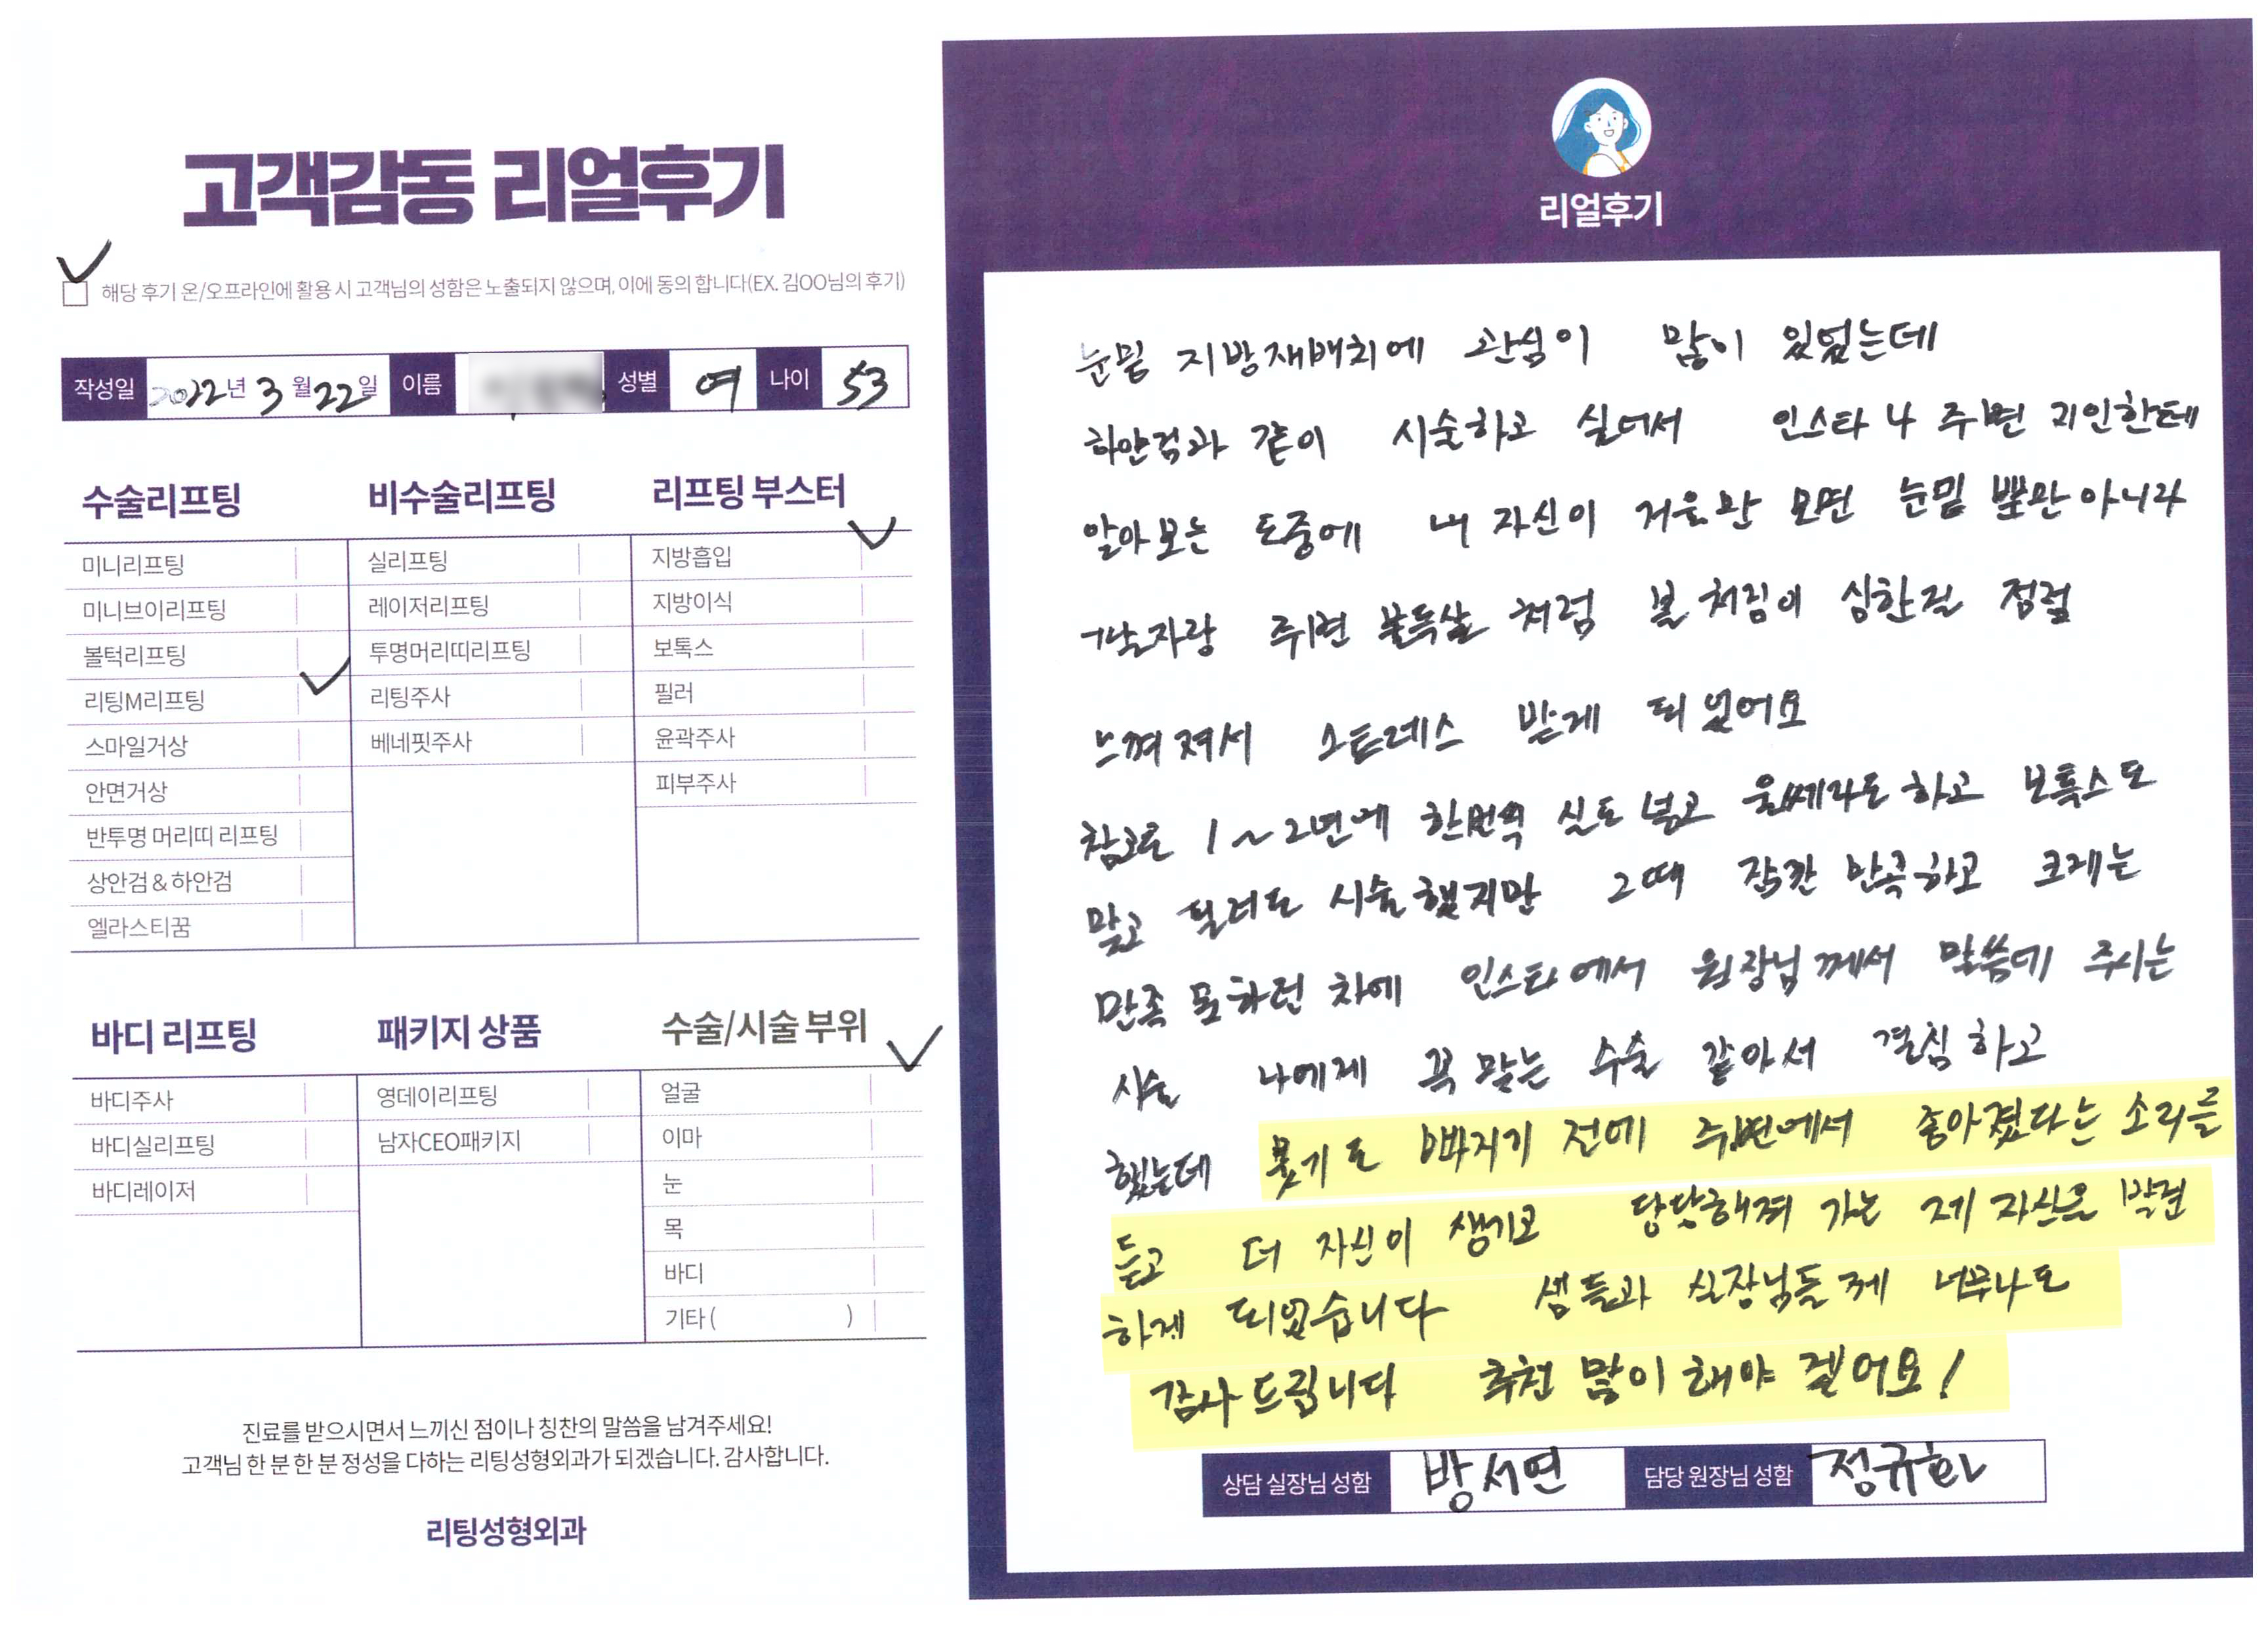 고객감동 리얼후기
해당 후기 온/오프라인에 활용 시 고객님의 성함은 노출되지 않으며, 이에 동의 합니다(EX. 김OO님의 후기)
작성일 2022년 3월 22일 이름 성별 여 나이 53
수술리프팅
미니리프팅
미니브이리프팅
볼턱리프팅
리팅M리프팅
스마일거상
안면거상
반투명 머리띠 리프팅
상안검 & 하안검
엘라스티꿈
비수술리프팅
실리프팅
레이저리프팅
투명머리띠리프팅
리팅주사
베네핏주사
리프팅 부스터
지방흡입
지방이식
보톡스
필러
윤곽주사
피부주사
바디 리프팅
바디주사
바디실리프팅
바디레이저
패키지 상품
영데이리프팅
남자CEO패키지
수술/시술 부위
얼굴
이마
눈
목
바디
기타 ( )
진료를 받으시면서 느끼신 점이나 칭찬의 말씀을 남겨주세요!
고객님 한 분 한 분 정성을 다하는 리팅성형외과가 되겠습니다. 감사합니다.
리팅성형외과
리얼후기
눈밑 지방재배치에 관심이 많이 있었는데
하안검과 같이 시술하고 싶어서 인스타나 주변 지인한테
알아보는 도중에 내 자신이 거울만 보면 눈밑 뿐만아니라
주변 불독살 처럼 볼처짐이 심한걸 점점
느껴져서 스트레스 받게 되었어요
참고로 1~2년에 한번씩 실도 넣고 울쎄라도 하고 보톡스도
맞고 필러도 시술했지만 그때 잠깐 만족하고 크게는
만족 못하던 차에 인스타에서 원장님께서 말씀 주시는
시술 나에게 꼭 맞는 수술 같아서 결심하고
했는데 붓기도 빠지기 전에 주변에서 좋아졌다는 소리를
듣고 더 자신이 생기고 당당해져 가는 제 자신을 발견
하게 되었습니다 샘들과 실장님들께 너무나도
감사드립니다 추천 많이 해야 겠어요!
상담 실장님 성함 방서연 담당 원장님 성함